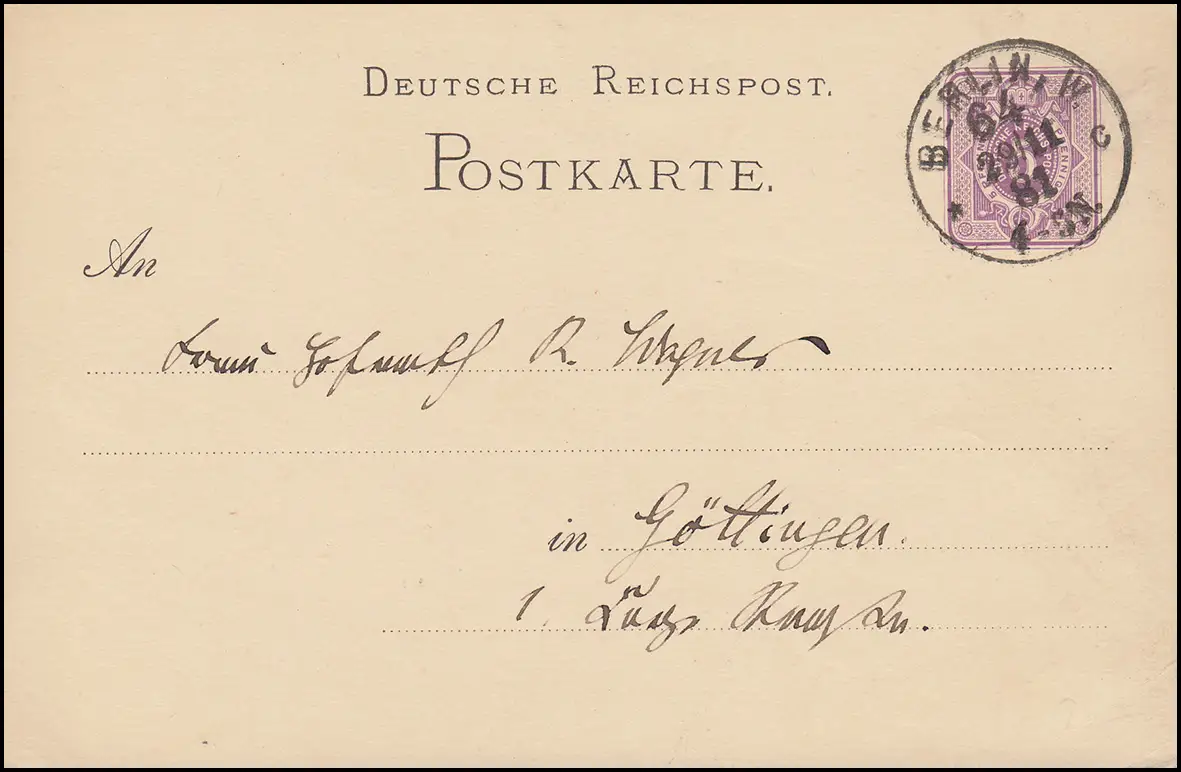 DEUTSCHE REICHSPOST.
POSTKARTE.
BERLIN, W.
64
c
29/11
81
4-5N.
*
An
Frau Hofrath R. Wagner
in Göttingen.
1.